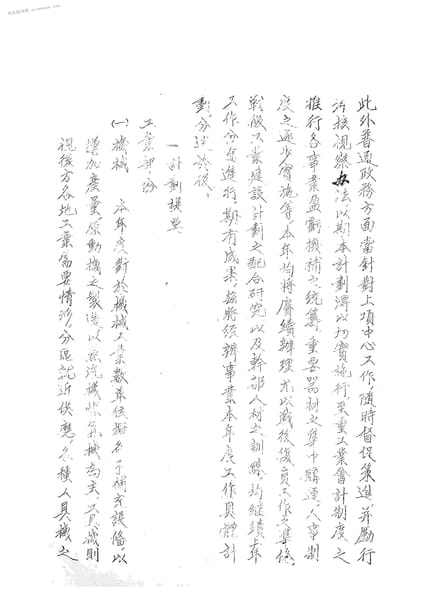 此外普通政務方面當針對上項中心工作,隨時督促策進,并勵行
分接視察办法以期本計劃得以切實施行至重工業會計制度之
推行各事業盈虧機補之統籌重要器材之集中購運,人事制
度之逐步實施等,本年均將賡續辦理,尤以戰後復員工作之準備,
戰後工業建設計劃之配合研究以及幹部人材之訓練,均繼續奉
工作分其進行期有成果,茲將經辦事業本年度工作具體計
劃分述於後、
一計劃摘要
工業部份
㈠機械 本年度對於機械工業數單位擬各予補充設備,以
增加產量,原動機之製造以蒸汽機柴氣機為主,工具機則
視後方各地工業需要情形,分區就近供應,各種工具機之